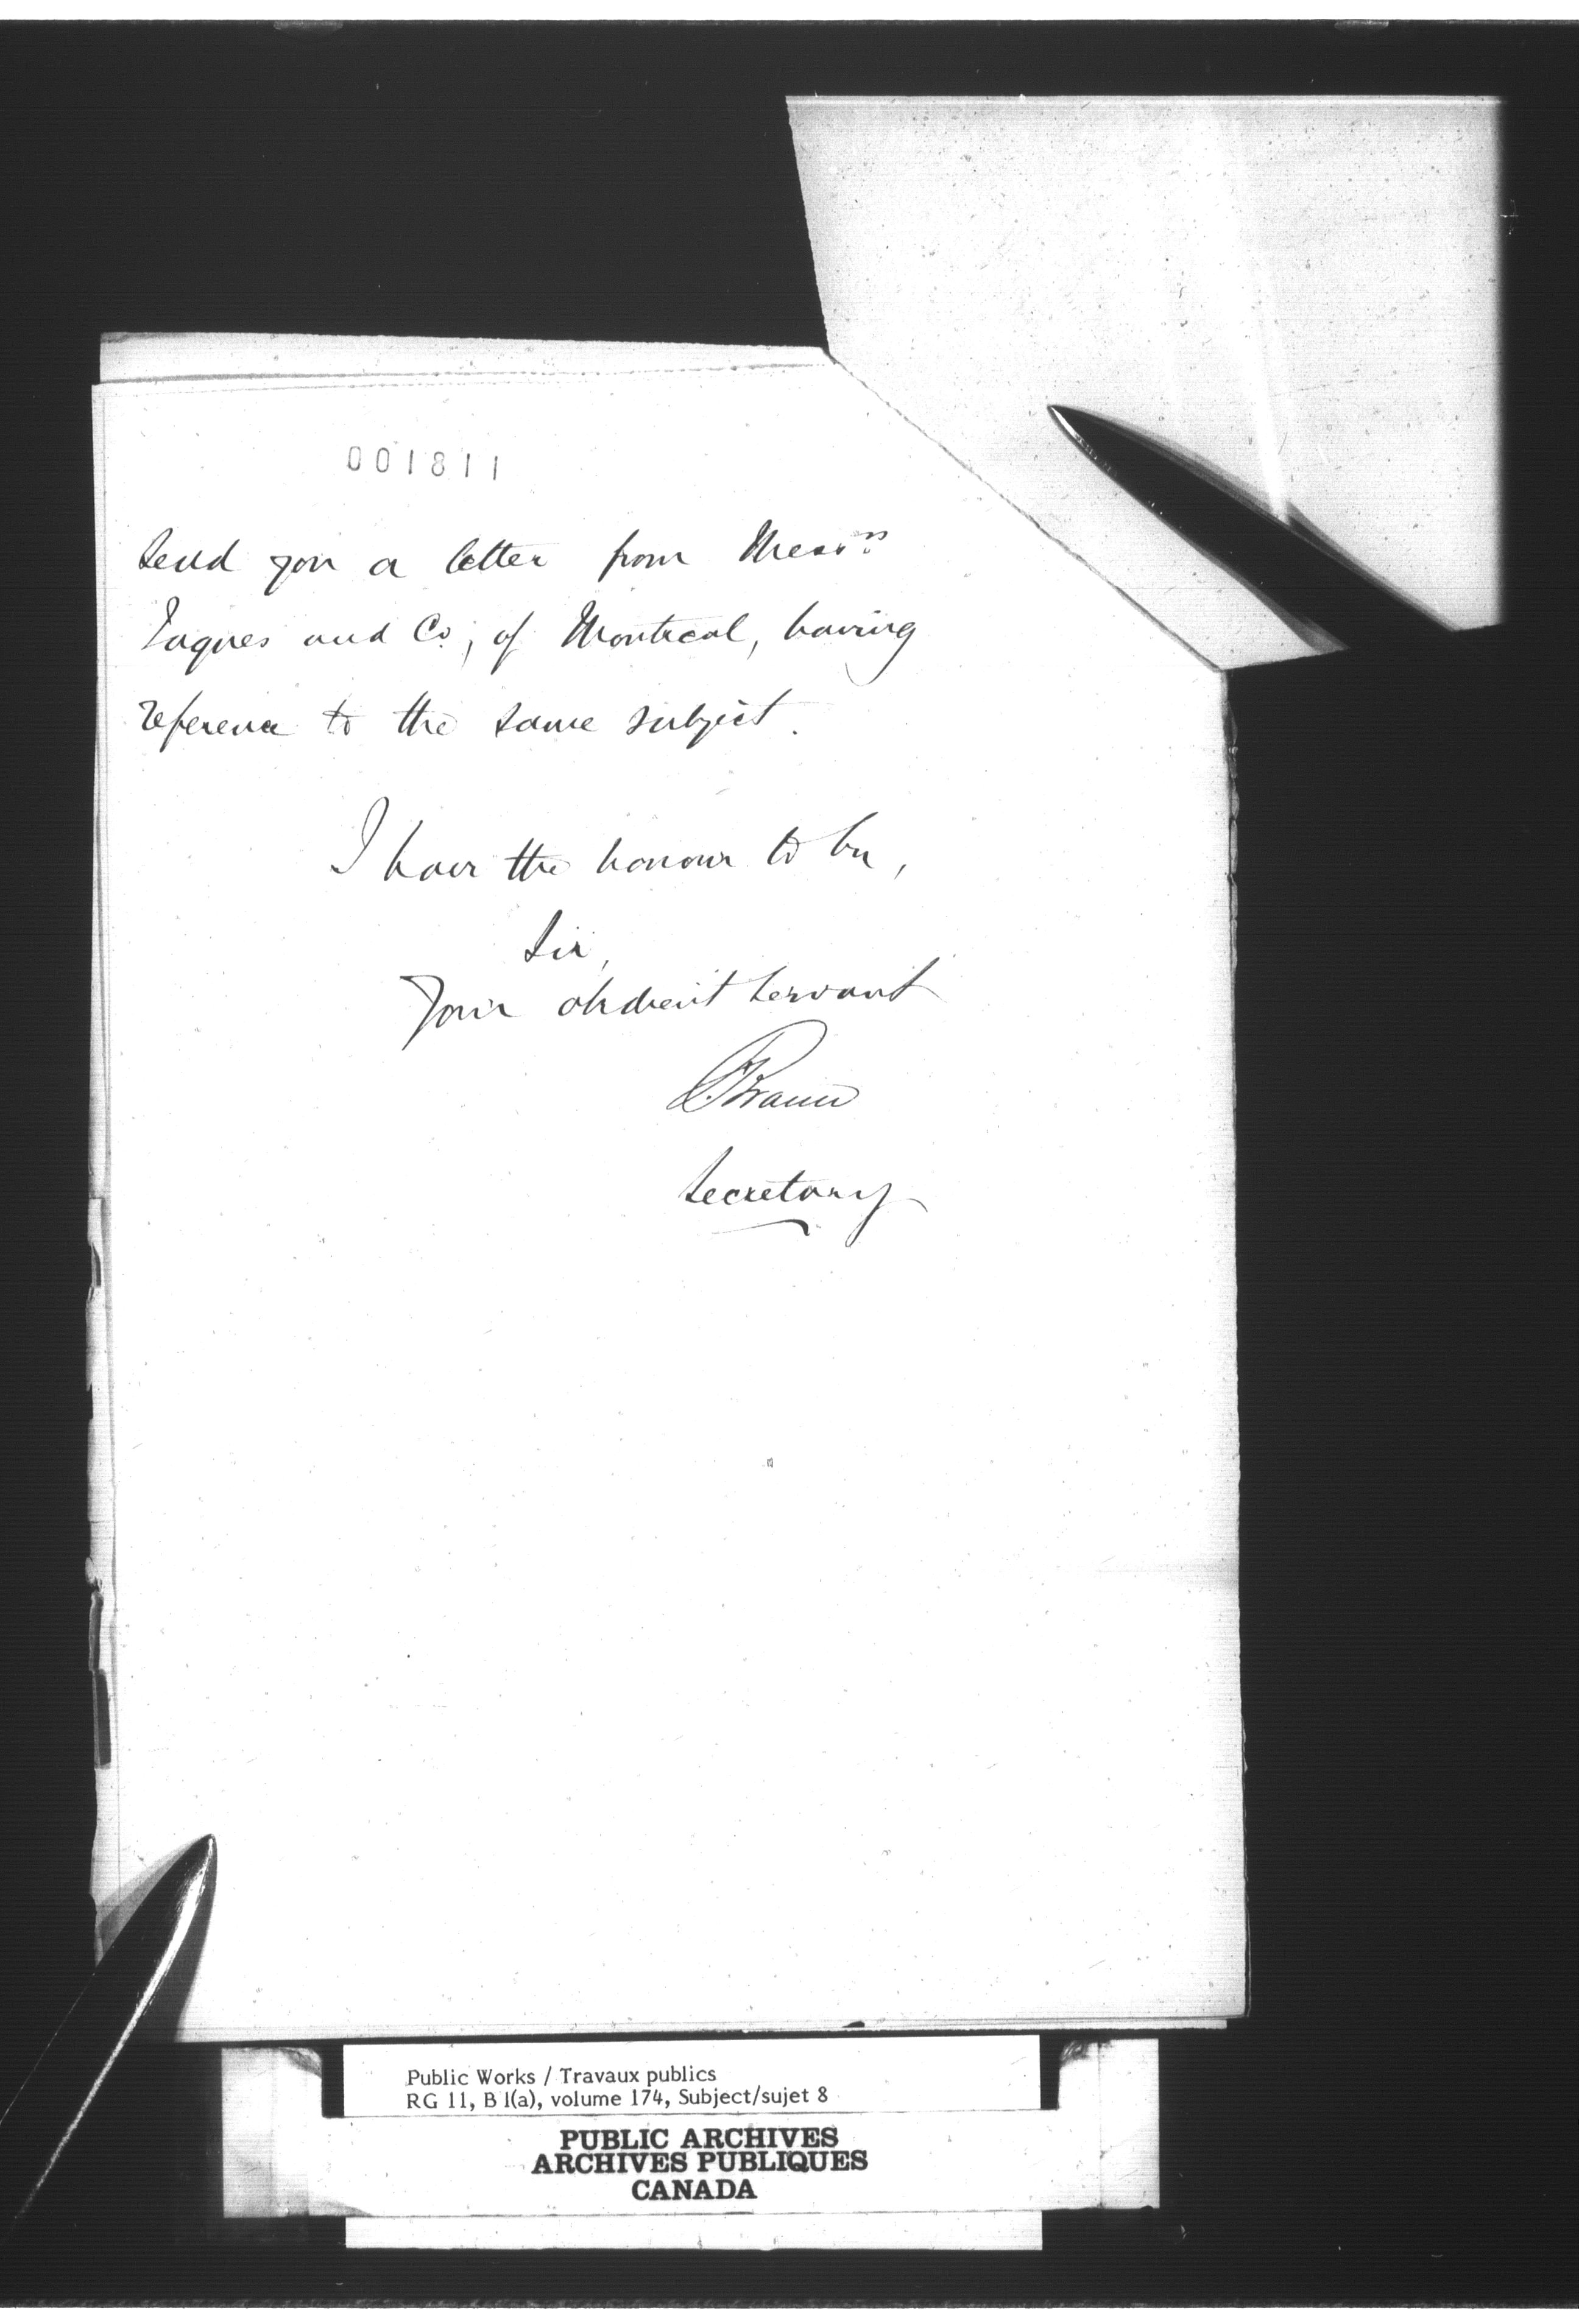 001811
send you a letter from Messrs
Jaques and Co., of Montreal, having
reference to the same subject.
I have the honour to be,
Sir,
Your obedient servant
F Braun
Secretary
Public Works / Travaux publics
RG 11, B 1(a), volume 174, Subject/sujet 8
PUBLIC ARCHIVES
ARCHIVES PUBLIQUES
CANADA